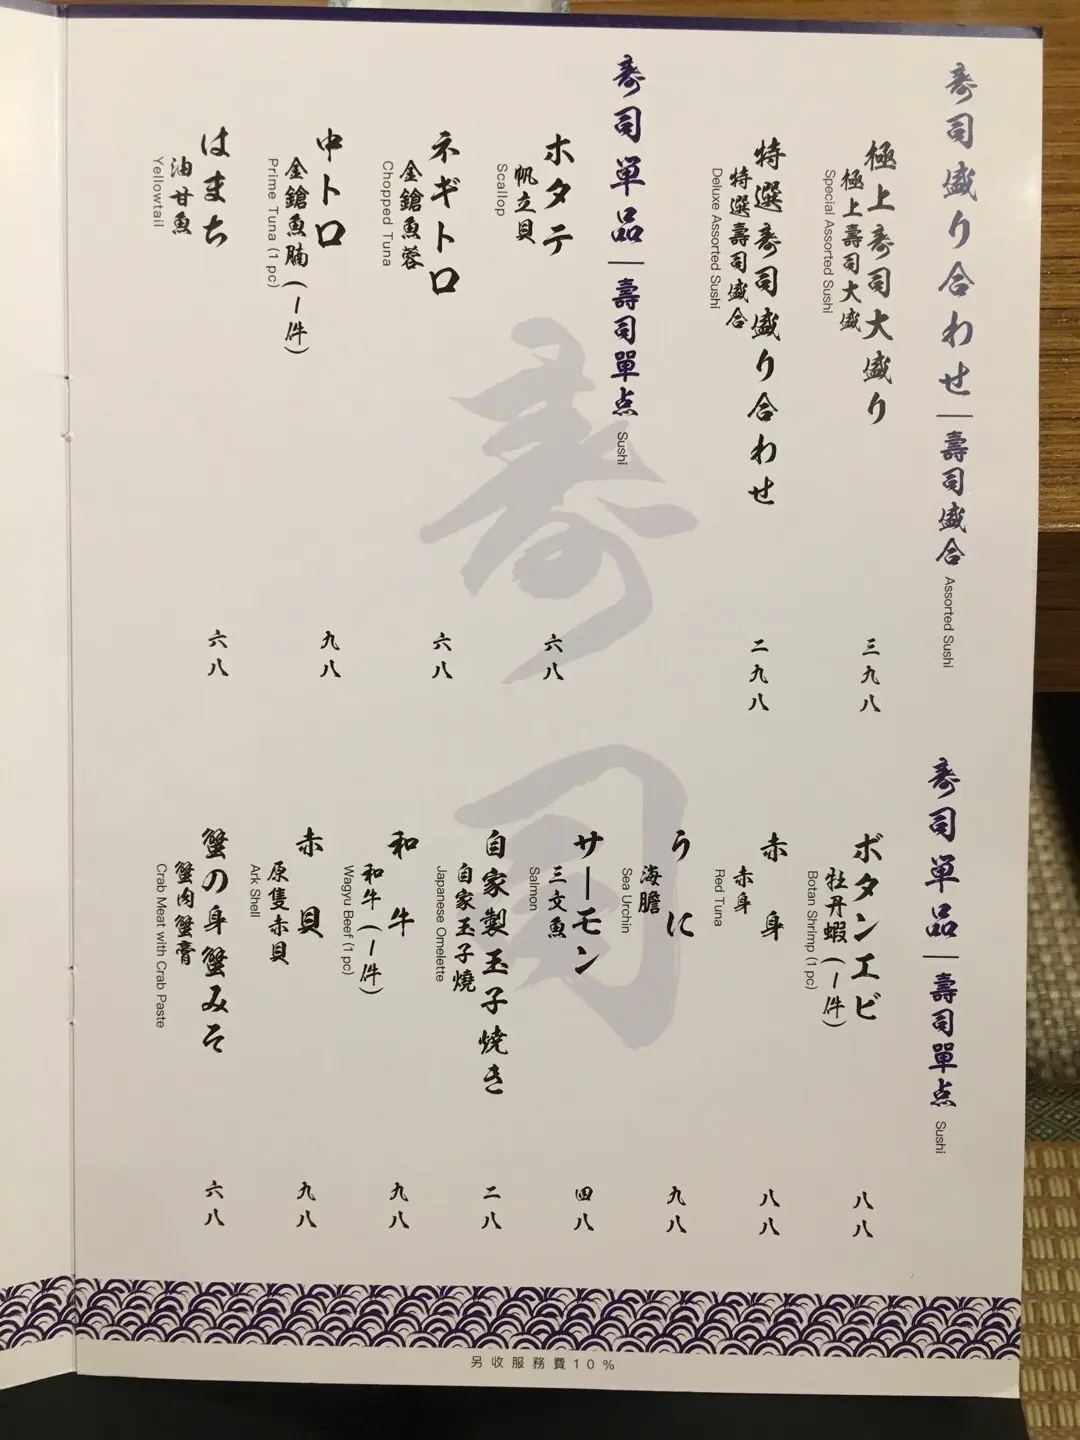 寿司盛り合わせ｜壽司盛合 Assorted Sushi
極上寿司大盛り
極上壽司大盛
Special Assorted Sushi
三九八
特選寿司盛り合わせ
特選壽司盛合
Deluxe Assorted Sushi
二九八
寿司単品｜壽司單点 Sushi
ホタテ
帆立貝
Scallop
六八
ネギトロ
金鎗魚蓉
Chopped Tuna
六八
中トロ
金鎗魚腩(一件)
Prime Tuna (1 pc)
九八
はまち
油甘魚
Yellowtail
六八
寿司単品｜壽司單点 Sushi
ボタンエビ
牡丹蝦(一件)
Botan Shrimp (1 pc)
八八
赤身
赤身
Red Tuna
八八
うに
海膽
Sea Urchin
九八
サーモン
三文魚
Salmon
四八
自家製玉子焼き
自家玉子燒
Japanese Omelette
二八
和牛
和牛(一件)
Wagyu Beef (1 pc)
九八
赤貝
原隻赤貝
Ark Shell
九八
蟹の身蟹みそ
蟹肉蟹膏
Crab Meat with Crab Paste
六八
寿司
另收服務費10%